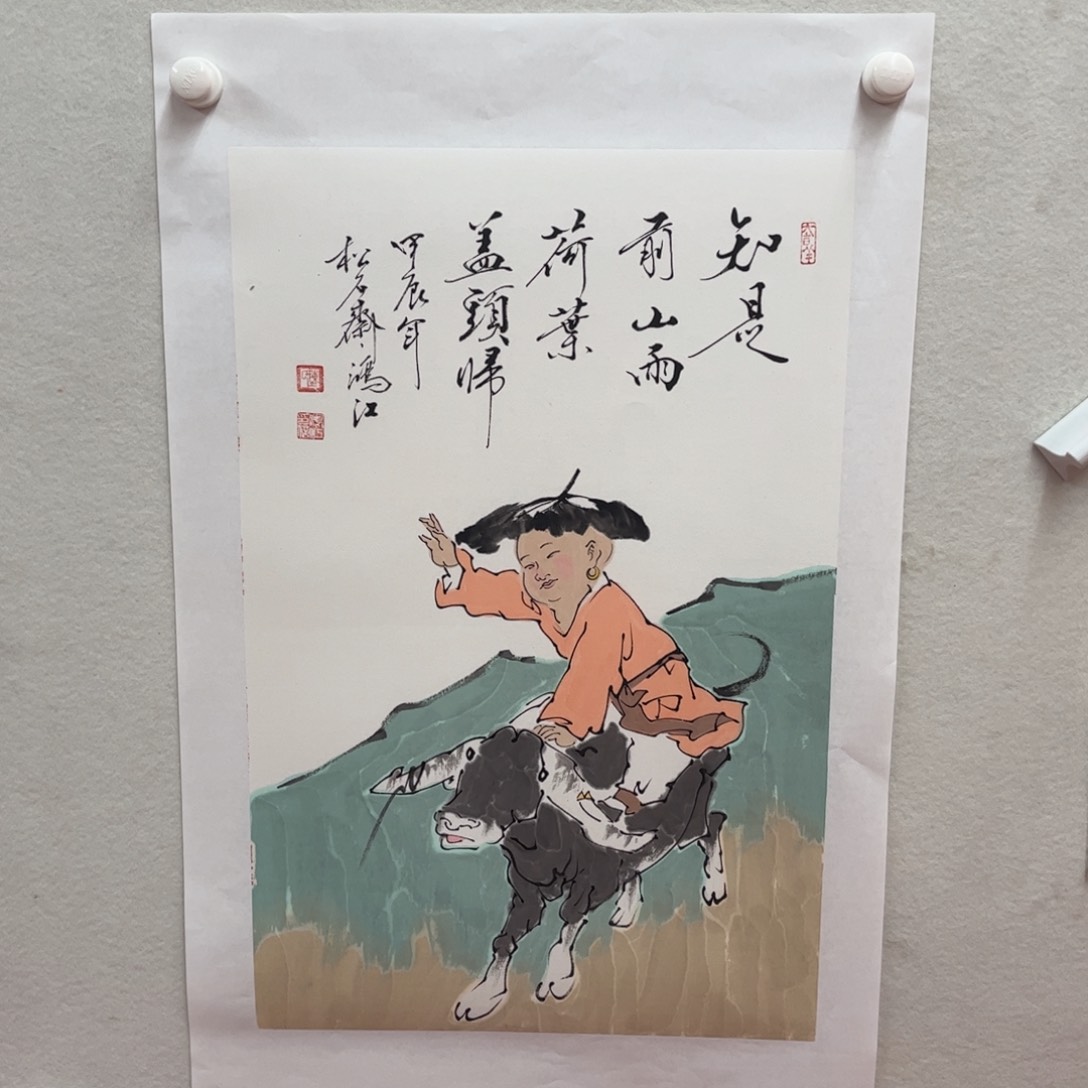 知是
前山雨
荷葉
盖頭歸
甲辰年
松石齋鴻江